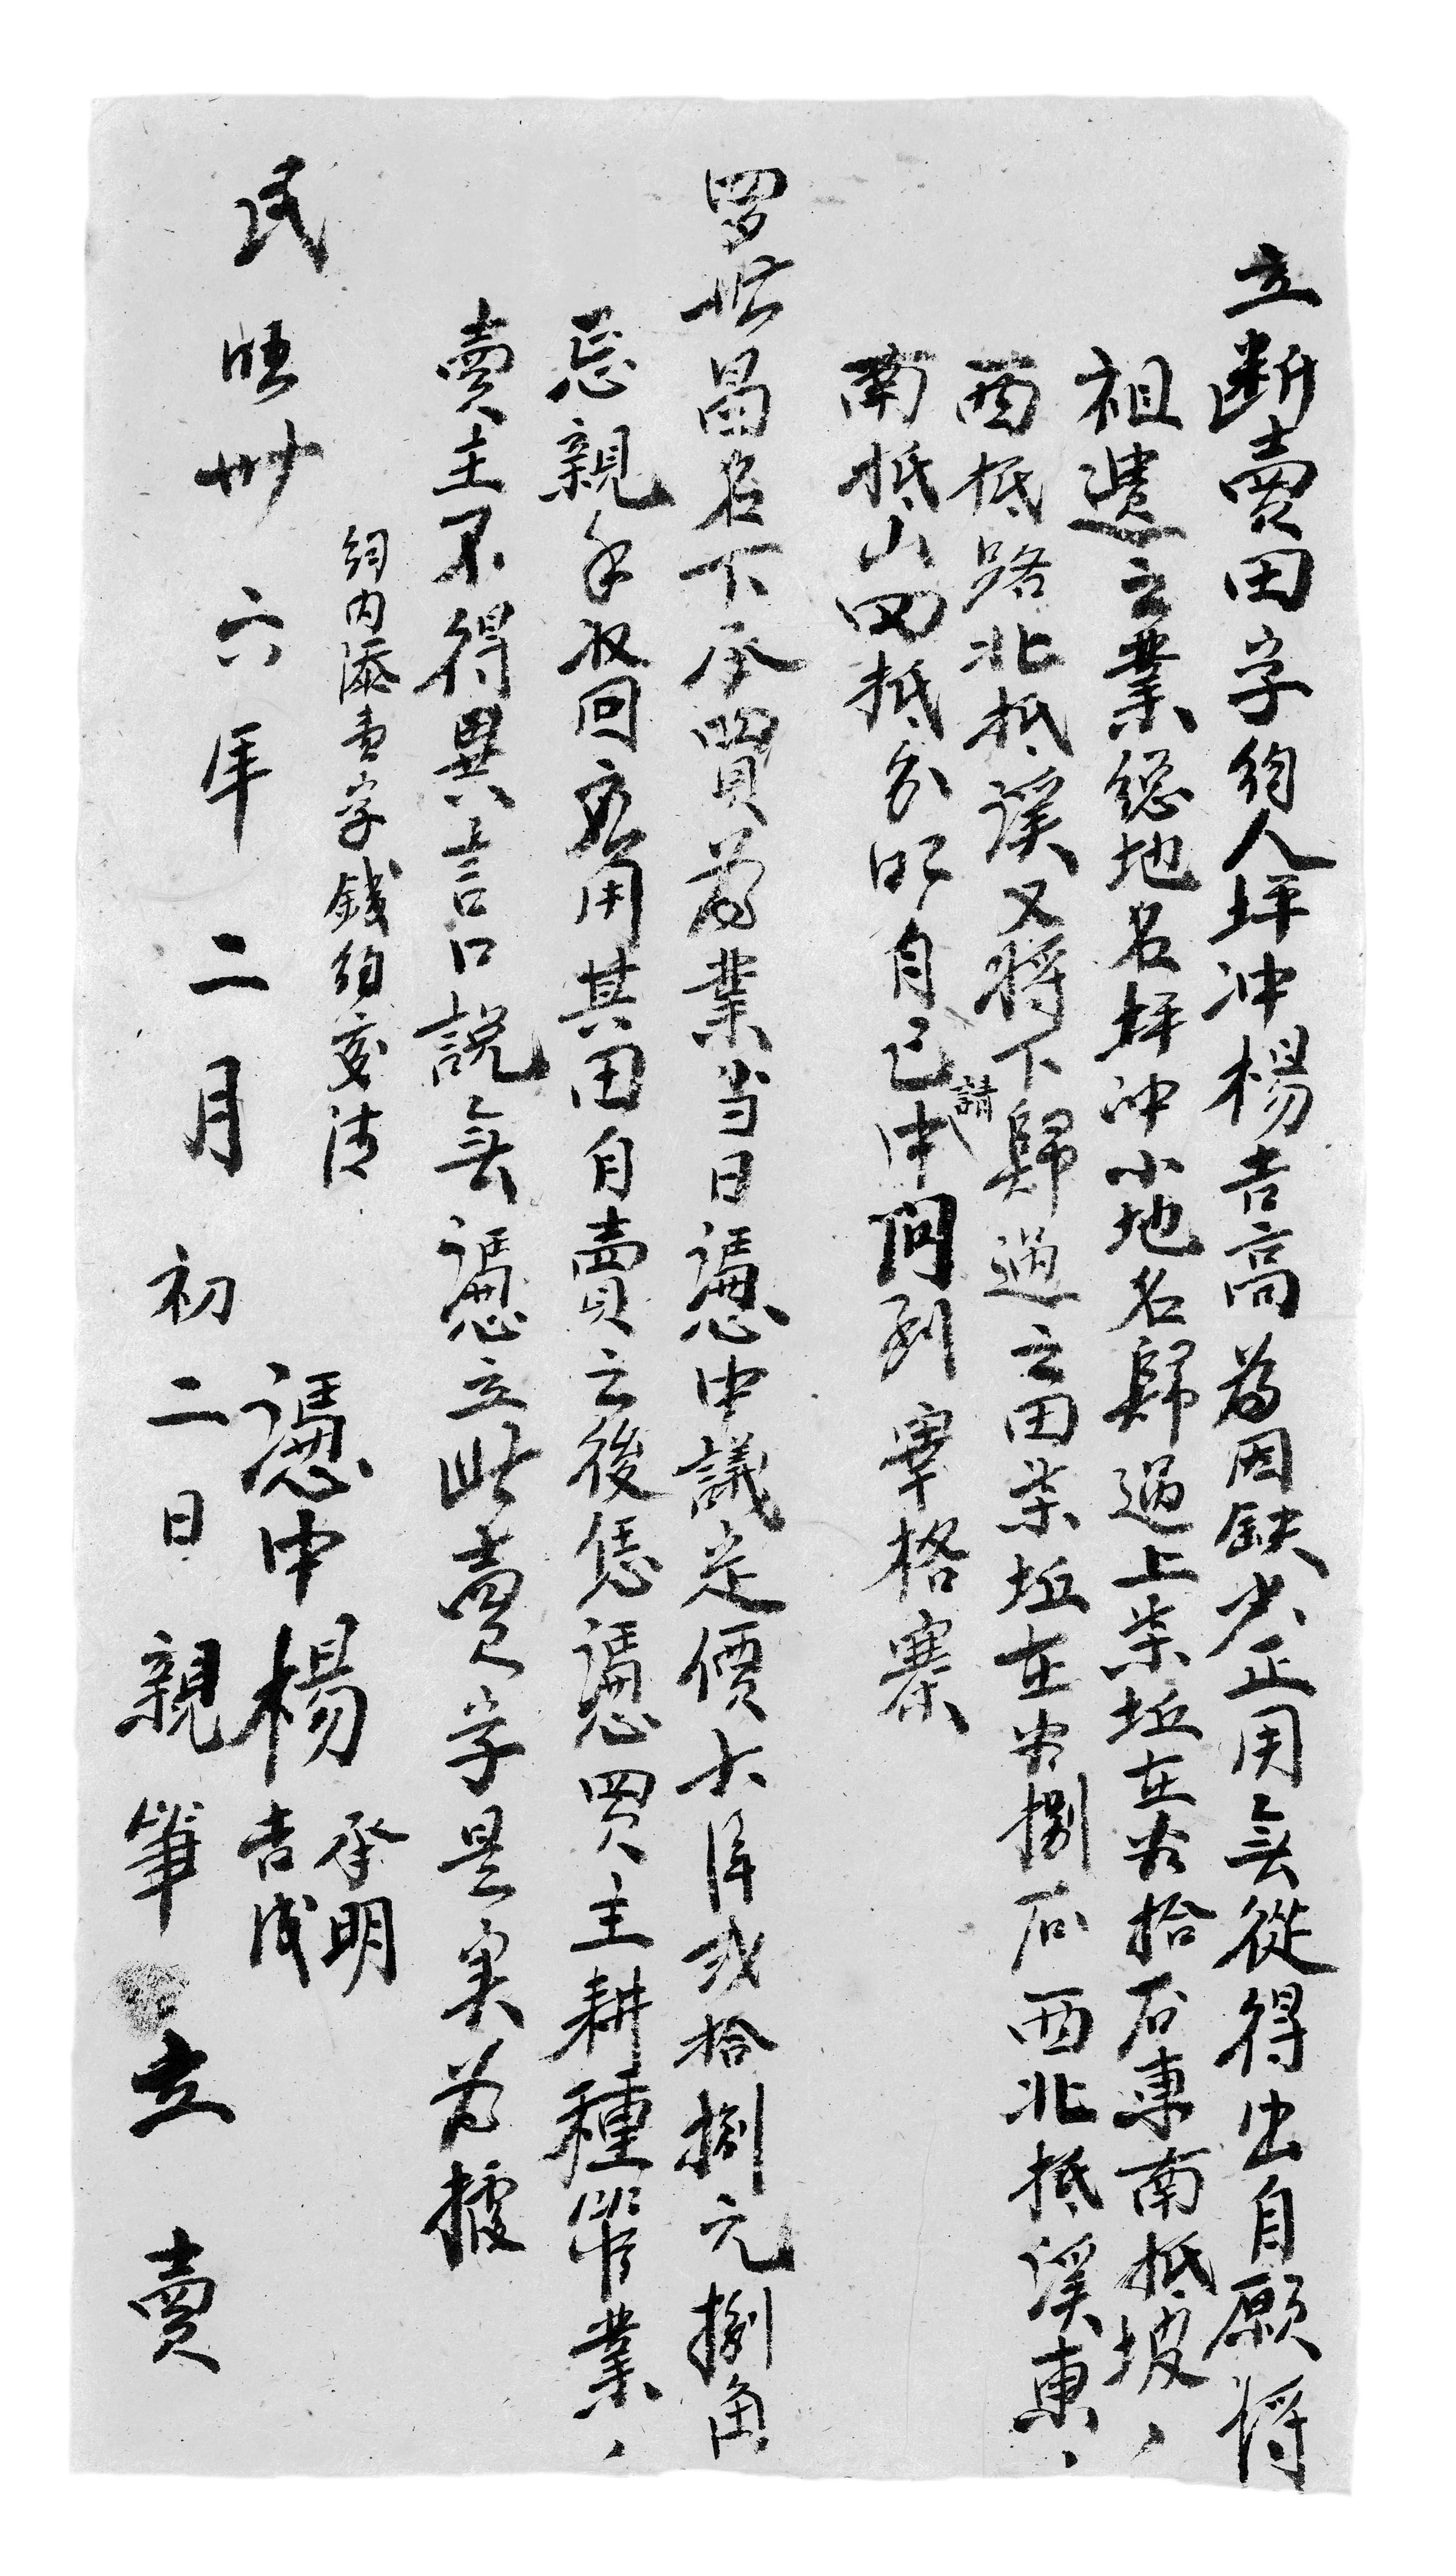 立断賣田字约人坪冲楊吉高為因缺少正用無從得出自願将
祖遺之業總地名坪冲小地名歸過上柒坵在谷拾石東南抵坡
西抵路北抵溪又将下歸過之田柒坵在谷捌石西北抵溪東
南抵山四抵分明自己請中问到 寨格寨
罗世昌名下承買為業当日憑中議定價大洋弍拾捌元捌角
親手收回應用其田自賣之後憑買主耕種管業
賣主不得異言口説無憑立此賣字是实为據
约内添壹字錢约交清
憑中楊承明
吉成
民囯卅六年二月初二日 親筆 立 賣